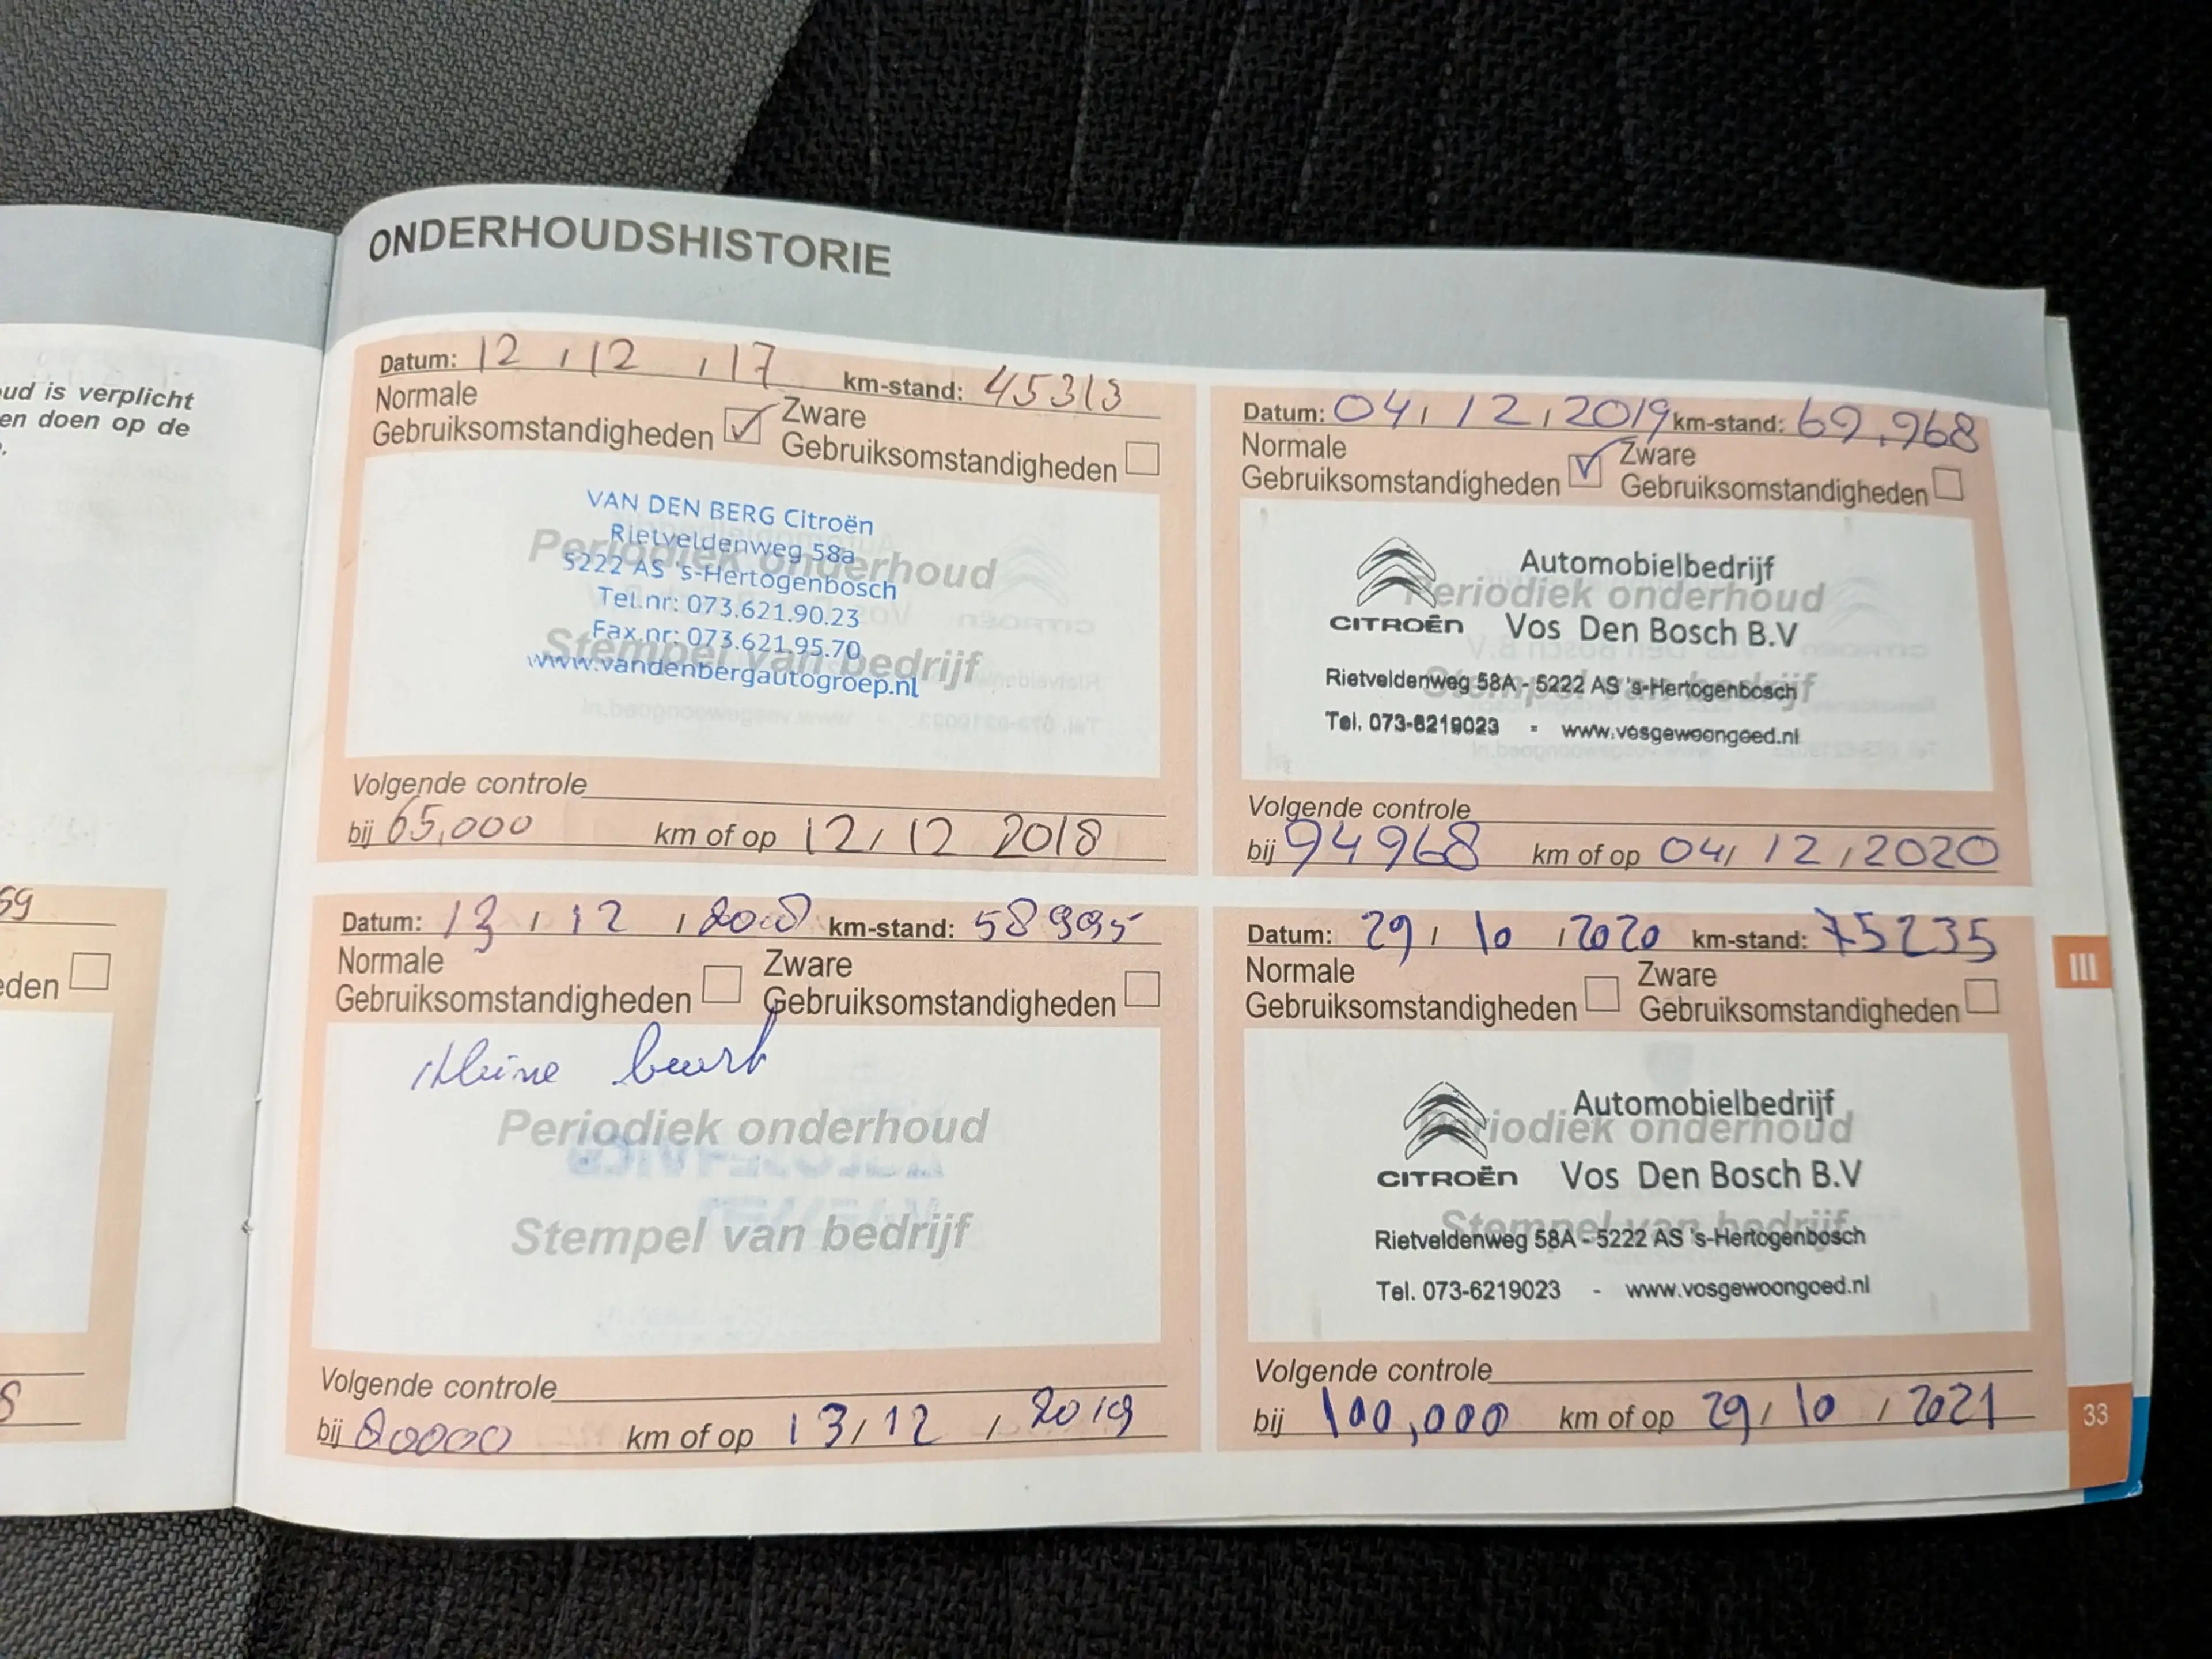 ud is verplicht
en doen op de
59
eden
ONDERHOUDSHISTORIE
Datum: 12 / 12 / 17 km-stand: 45313
Normale
Gebruiksomstandigheden
Zware
Gebruiksomstandigheden
Periodiek onderhoud
Stempel van bedrijf
VAN DEN BERG Citroën
Rietveldenweg 58a
5222 AS 's-Hertogenbosch
Tel.nr: 073.621.90.23
Fax.nr: 073.621.95.70
www.vandenbergautogroep.nl
Volgende controle
bij 65,000 km of op 12 / 12 2018
Datum: 13 / 12 / 2018 km-stand: 58995
Normale
Gebruiksomstandigheden
Zware
Gebruiksomstandigheden
Kleine beurt
Periodiek onderhoud
Stempel van bedrijf
Volgende controle
bij 80000 km of op 13 / 12 / 2019
Datum: 04 / 12 / 2019 km-stand: 69.968
Normale
Gebruiksomstandigheden
Zware
Gebruiksomstandigheden
Periodiek onderhoud
Stempel van bedrijf
Automobielbedrijf
CITROËN Vos Den Bosch B.V
Rietveldenweg 58A - 5222 AS 's-Hertogenbosch
Tel. 073-6219023 - www.vosgewoongoed.nl
Volgende controle
bij 94968 km of op 04 / 12 / 2020
Datum: 29 / 10 / 2020 km-stand: 75235
Normale
Gebruiksomstandigheden
Zware
Gebruiksomstandigheden
Periodiek onderhoud
Stempel van bedrijf
Automobielbedrijf
CITROËN Vos Den Bosch B.V
Rietveldenweg 58A - 5222 AS 's-Hertogenbosch
Tel. 073-6219023 - www.vosgewoongoed.nl
Volgende controle
bij 100,000 km of op 29 / 10 / 2021
III
33